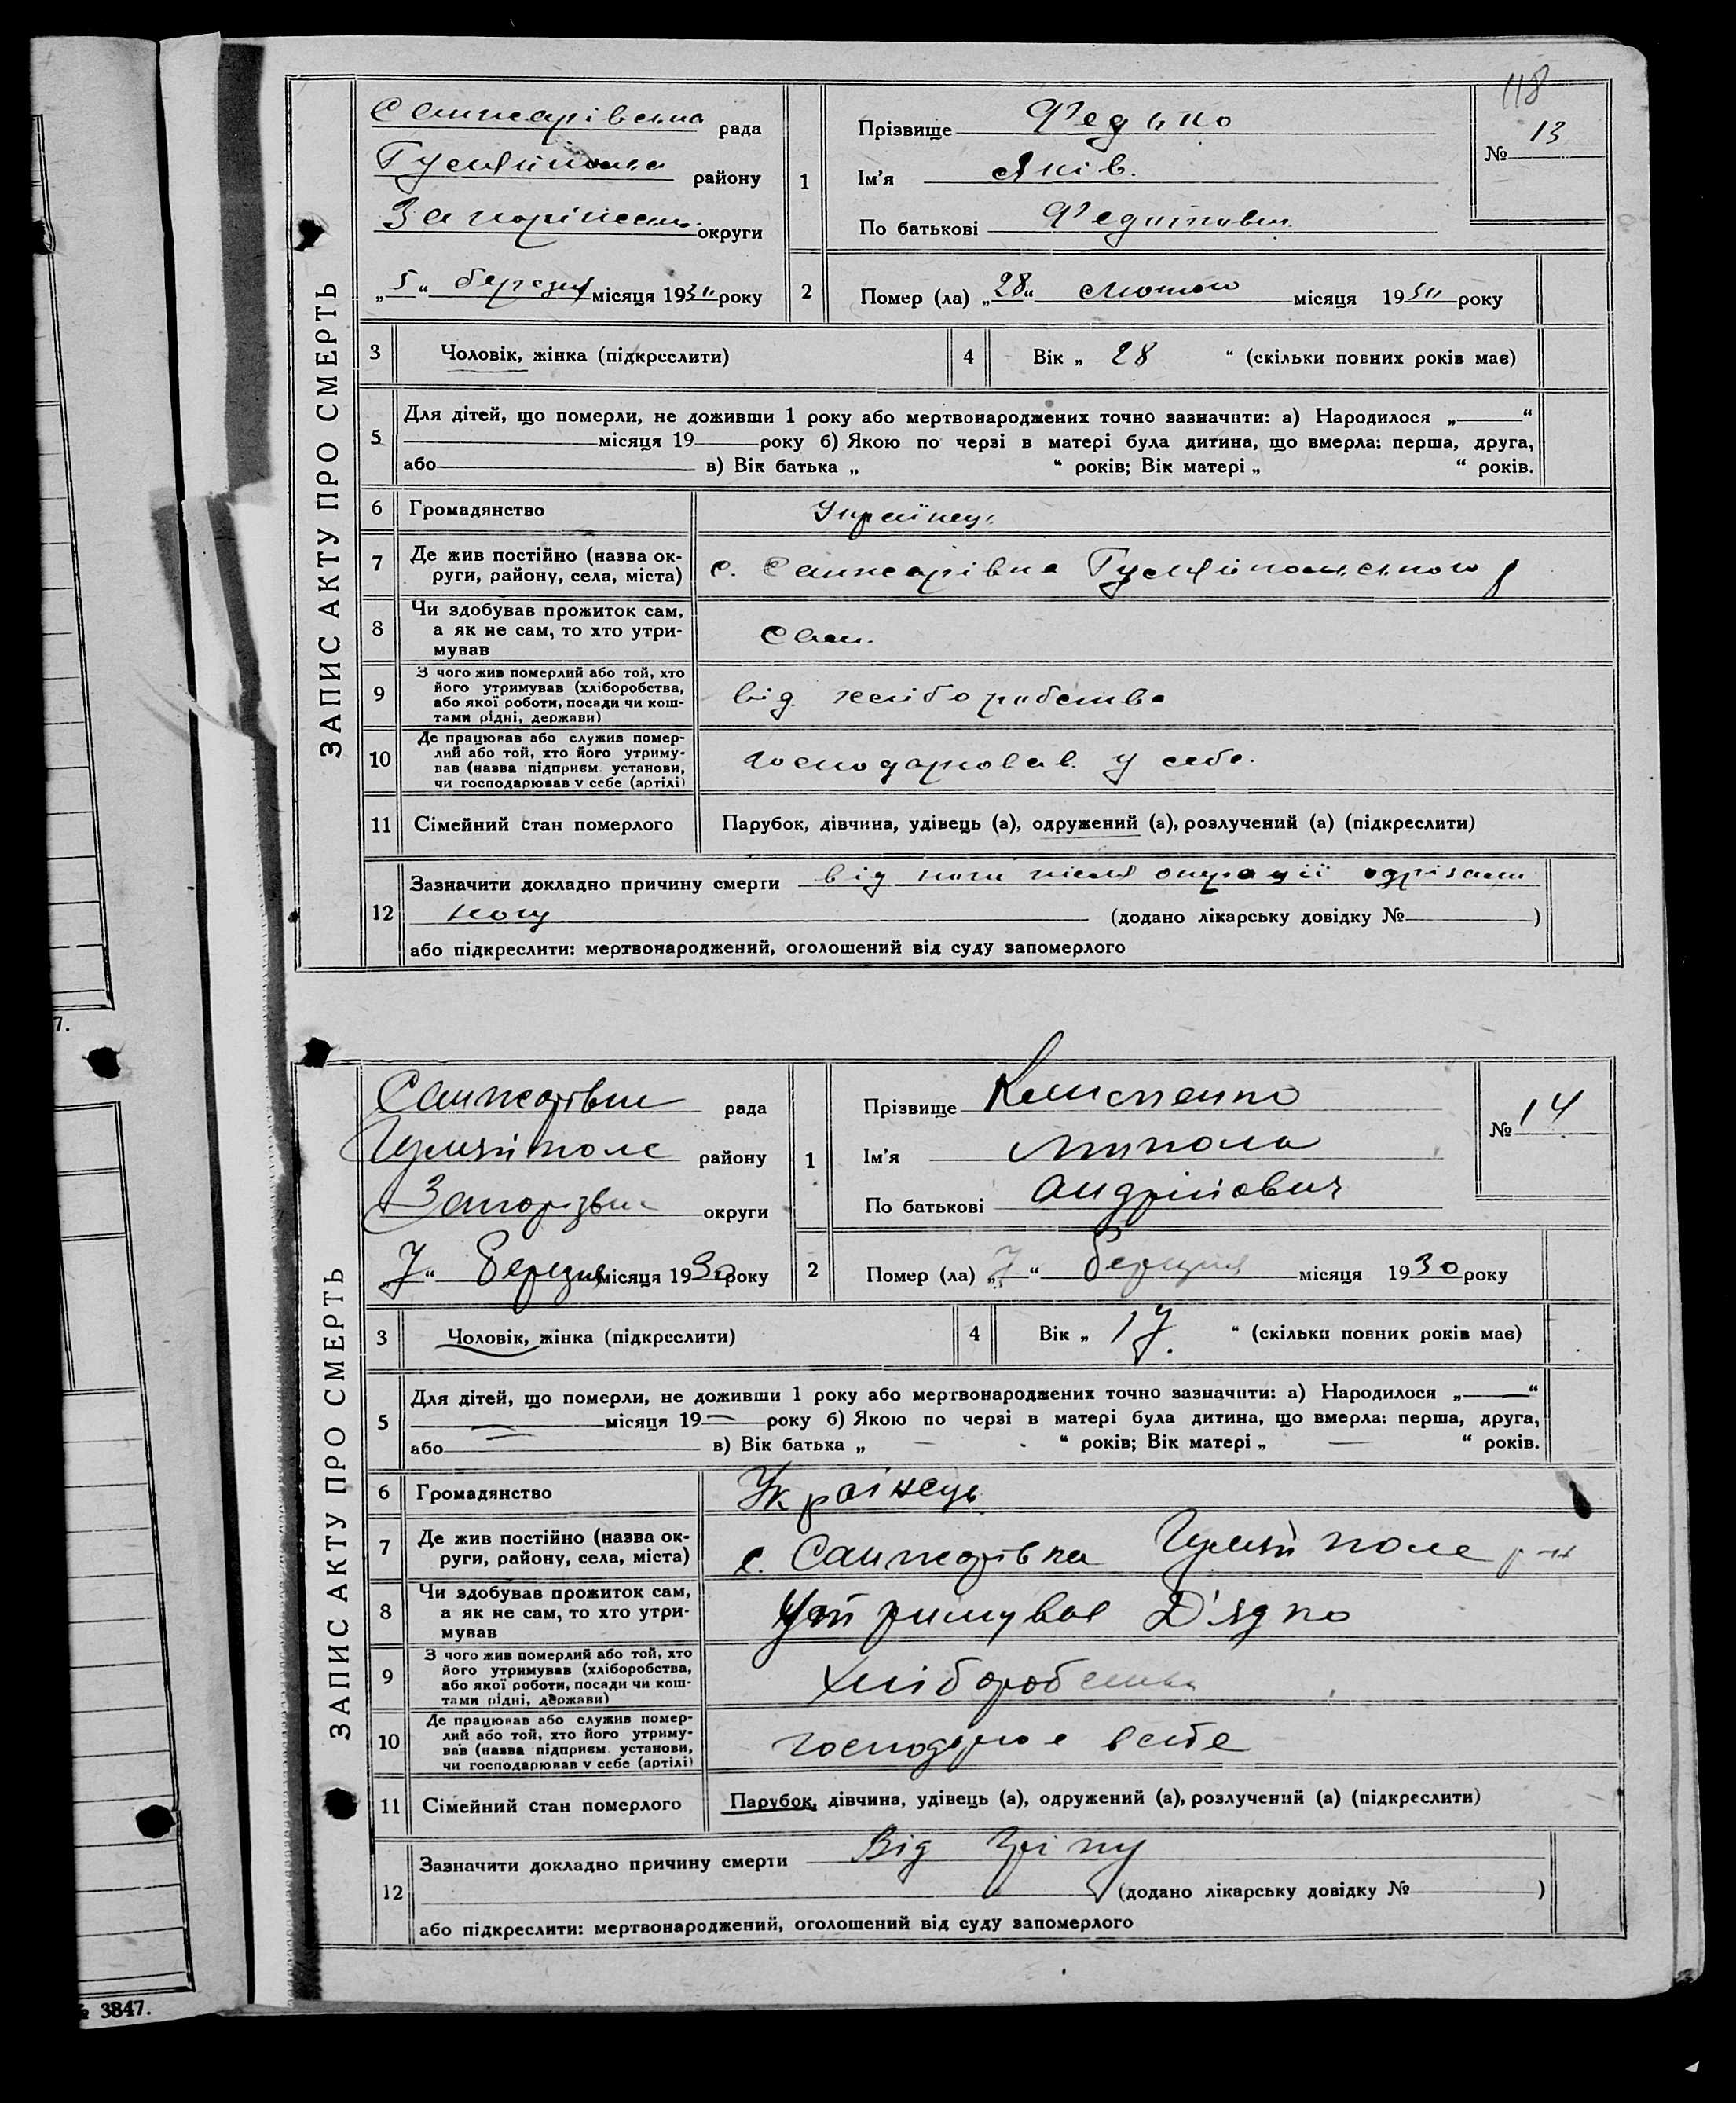 118
ЗАПИС АКТУ ПРО СМЕРТЬ
Санжарівська рада
Гуляйполь району
Запоріжськ. округи
„5“ березня місяця 1930 року
1
Прізвище Федько
Ім'я Яків.
По батькові Федотович
№ 13
2
Помер (ла) „28“ лютого місяця 1930 року
3
Чоловік, жінка (підкреслити)
4
Вік „ 28 “ (скільки повних років має)
5
Для дітей, що померли, не доживши 1 року або мертвонароджених точно зазначити: а) Народилося „ “
місяця 19 року б) Якою по черзі в матері була дитина, що вмерла: перша, друга,
або в) Вік батька „ “ років; Вік матері „ “ років.
6
Громадянство
Українець
7
Де жив постійно (назва ок-
руги, району, села, міста)
с. Санжарівка Гуляйпольського р
8
Чи здобував прожиток сам,
а як не сам, то хто утри-
мував
Сам.
9
З чого жив померлий або той, хто
його утримував (хліборобства,
або якої роботи, посади чи кош-
тами рідні, держави)
від хліборобства
10
Де працював або служив помер-
лий або той, хто його утриму-
вав (назва підприєм. установи,
чи господарював у себе (артілі)
господарював у себе.
11
Сімейний стан померлого
Парубок, дівчина, удівець (а), одружений (а), розлучений (а) (підкреслити)
12
Зазначити докладно причину смерти від ноги після операції одрізали
ногу (додано лікарську довідку № )
або підкреслити: мертвонароджений, оголошений від суду запомерлого
ЗАПИС АКТУ ПРО СМЕРТЬ
Санжарівськ рада
Гуляйполе району
Запорізьк округи
„7“ Березня місяця 1930 року
1
Прізвище
Ім'я Микола
По батькові Андрійович
№ 14
2
Помер (ла) „7“ березня місяця 1930 року
3
Чоловік, жінка (підкреслити)
4
Вік „ 17. “ (скільки повних років має)
5
Для дітей, що померли, не доживши 1 року або мертвонароджених точно зазначити: а) Народилося „—“
— місяця 19— року б) Якою по черзі в матері була дитина, що вмерла: перша, друга,
або — в) Вік батька „ — “ років; Вік матері „ — “ років.
6
Громадянство
Українець
7
Де жив постійно (назва ок-
руги, району, села, міста)
с. Санжарівка Гуляй поле р-н
8
Чи здобував прожиток сам,
а як не сам, то хто утри-
мував
Утримував Д'ядко
9
З чого жив померлий або той, хто
його утримував (хліборобства,
або якої роботи, посади чи кош-
тами рідні, держави)
Хліборобства
10
Де працював або служив помер-
лий або той, хто його утриму-
вав (назва підприєм. установи,
чи господарював у себе (артілі)
господарює в себе
11
Сімейний стан померлого
Парубок, дівчина, удівець (а), одружений (а), розлучений (а) (підкреслити)
12
Зазначити докладно причину смерти Від Гріпу
(додано лікарську довідку № )
або підкреслити: мертвонароджений, оголошений від суду запомерлого
7.
3847.